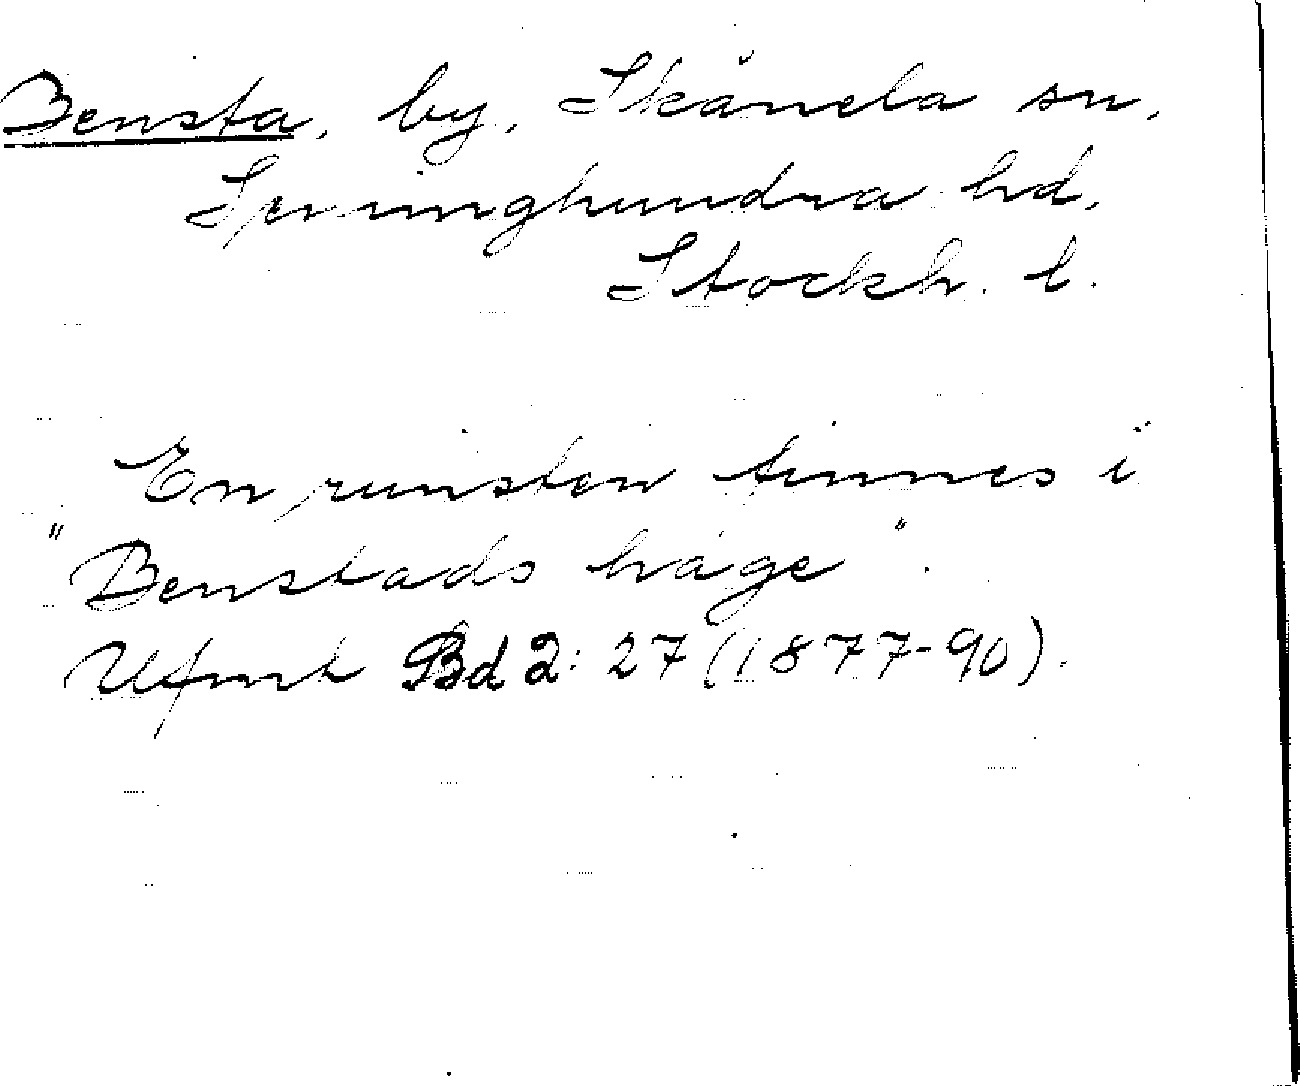 Bensta, by, Skånela sn,
Seminghundra hd,
Stockh. l.
En runsten finnes i
"Benstads hage".
Ufmt Bd 2: 27 (1877-90).